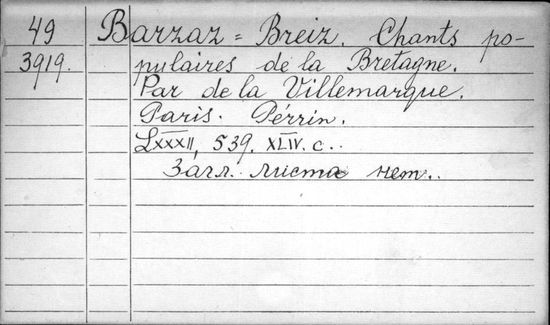 49 Barzaz = Breiz. Chants po-
3919. pulaires de la Bretagne.
Par de la Villemarque.
Paris. Pérrin.
LXXXII, 539. XLIV. c..
Загл. листа нет..